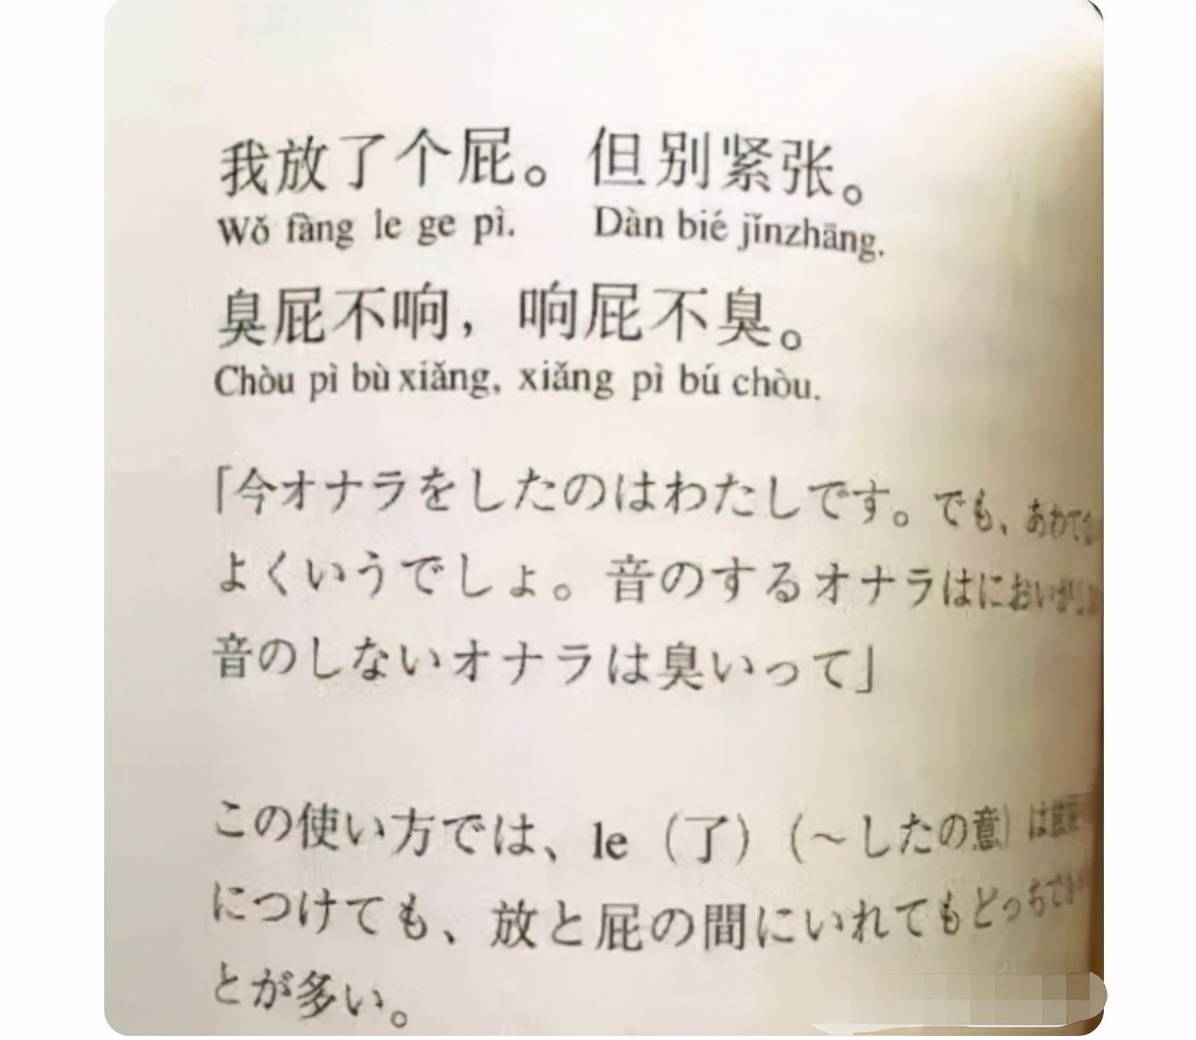 我放了个屁。但别紧张。
Wǒ fàng le ge pì. Dàn bié jǐnzhāng.
臭屁不响，响屁不臭。
Chòu pì bù xiǎng, xiǎng pì bú chòu.
「今オナラをしたのはわたしです。でも、あわて
よくいうでしょ。音のするオナラはにおい
音のしないオナラは臭いって」
この使い方では、le（了）（～したの意）は
につけても、放と屁の間にいれてもどっちで
とが多い。